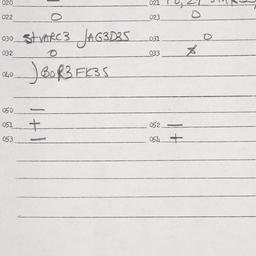 020 — 021
022 0 023 0
030 STVARC3 JAG3D35 031 0
032 0 033
040 )BOR3FK35
050 —
051 + 052 —
053 — 054 +